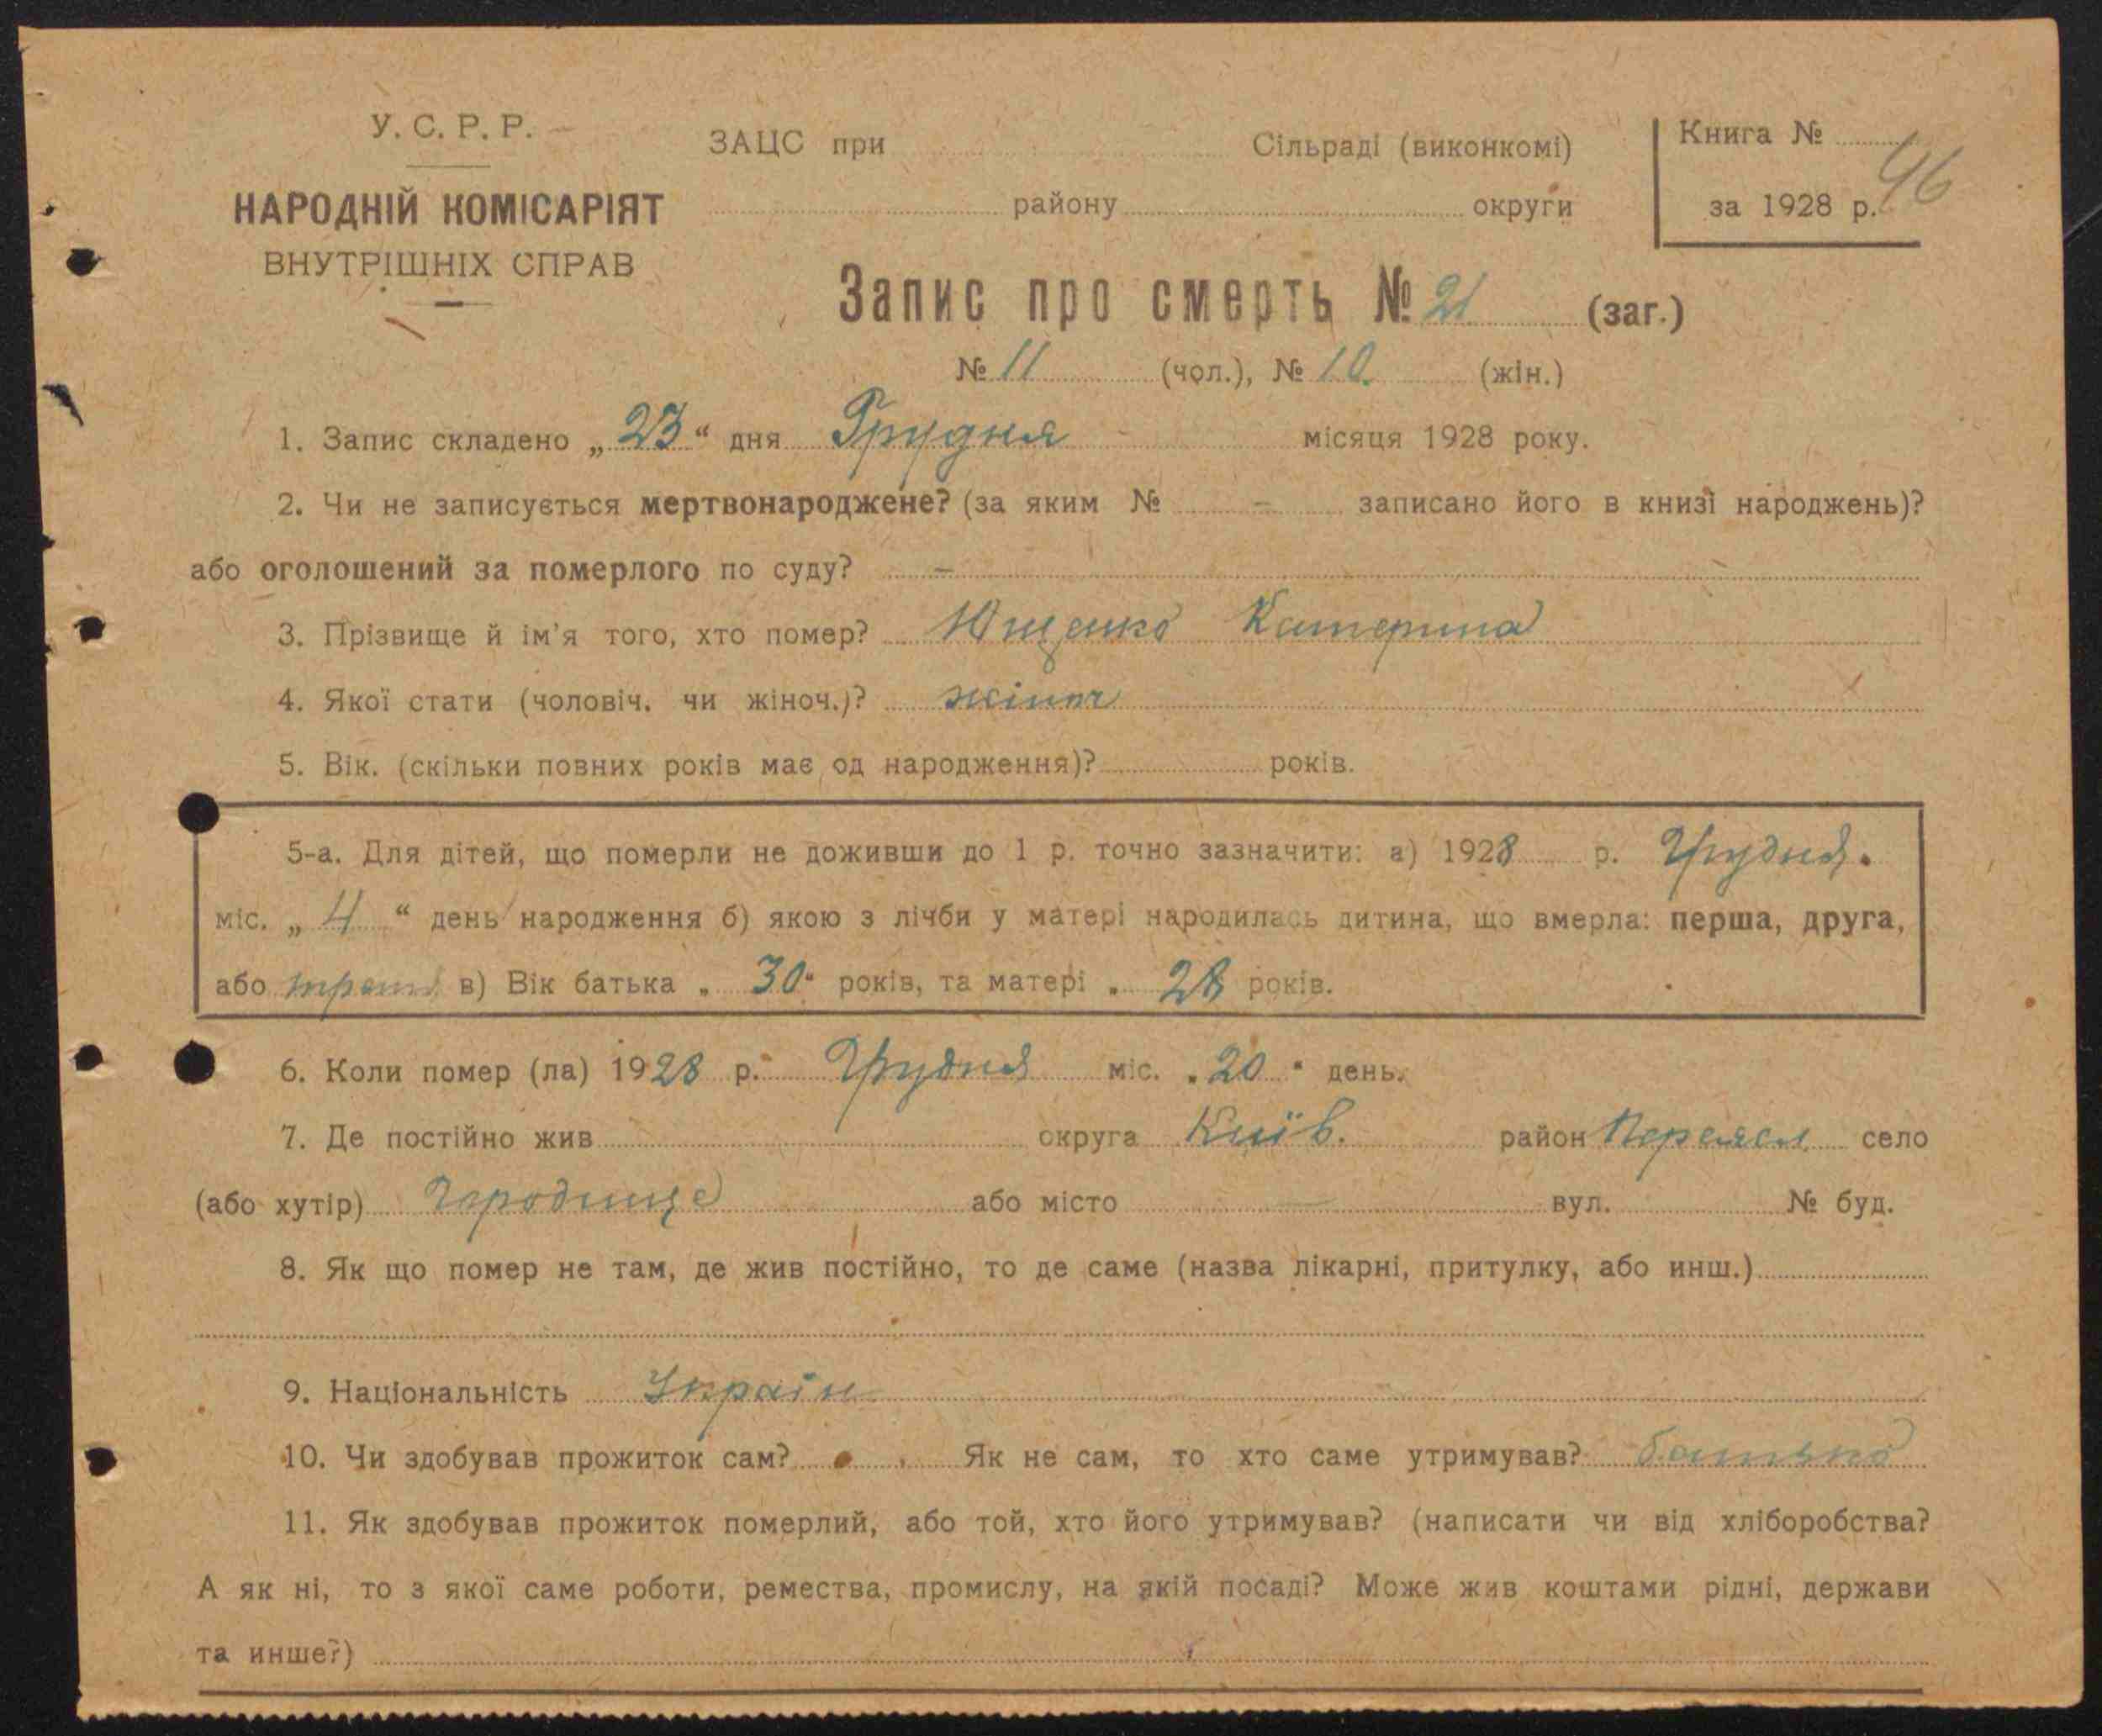 У. С. Р. Р.
НАРОДНІЙ КОМІСАРІЯТ
ВНУТРІШНІХ СПРАВ
ЗАЦС при Сільраді (виконкомі)
району округи
Книга №
46
за 1928 р.
Запис про смерть № 21 (заг.)
№ 11 (чол.), № 10. (жін.)
1. Запис складено „ 23 “ дня Грудня місяця 1928 року.
2. Чи не записується мертвонароджене? (за яким № – записано його в книзі народжень)?
або оголошений за померлого по суду? –
3. Прізвище й ім'я того, хто помер? Ющенко Катерина
4. Якої стати (чоловіч. чи жіноч.)? жіноч
5. Вік. (скільки повних років має од народження)? років.
5-а. Для дітей, що померли не доживши до 1 р. точно зазначити: а) 1928 р. Грудня.
міс. „ 4 “ день народження б) якою з лічби у матері народилась дитина, що вмерла: перша, друга,
або в) Вік батька „ 30 “ років, та матері „ 28 років.
6. Коли помер (ла) 1928 р. Грудня міс. „ 20 “ день.
7. Де постійно жив округа Київ. район Переясл село
(або хутір) Городище або місто — вул. № буд.
8. Як що помер не там, де жив постійно, то де саме (назва лікарні, притулку, або инш.)
9. Національність Україн
10. Чи здобував прожиток сам? Як не сам, то хто саме утримував? батько
11. Як здобував прожиток померлий, або той, хто його утримував? (написати чи від хліборобства?
А як ні, то з якої саме роботи, ремества, промислу, на якій посаді? Може жив коштами рідні, держави
та инше?)